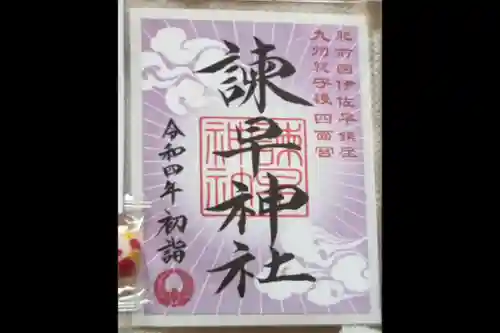 肥前国伊佐早鎮座
九州総守護四面宮
諫早神社
諫早神社
令和四年 初詣